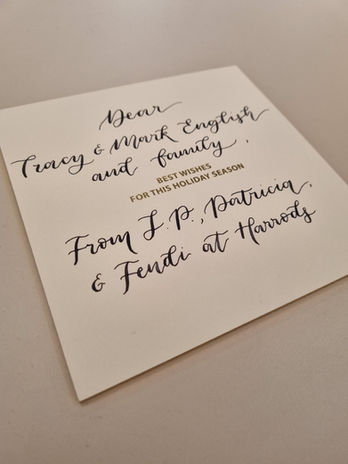 Dear
Tracy & Mark English
and family,
BEST WISHES
FOR THIS HOLIDAY SEASON
From J.P., Patricia,
& Fendi at Harrods